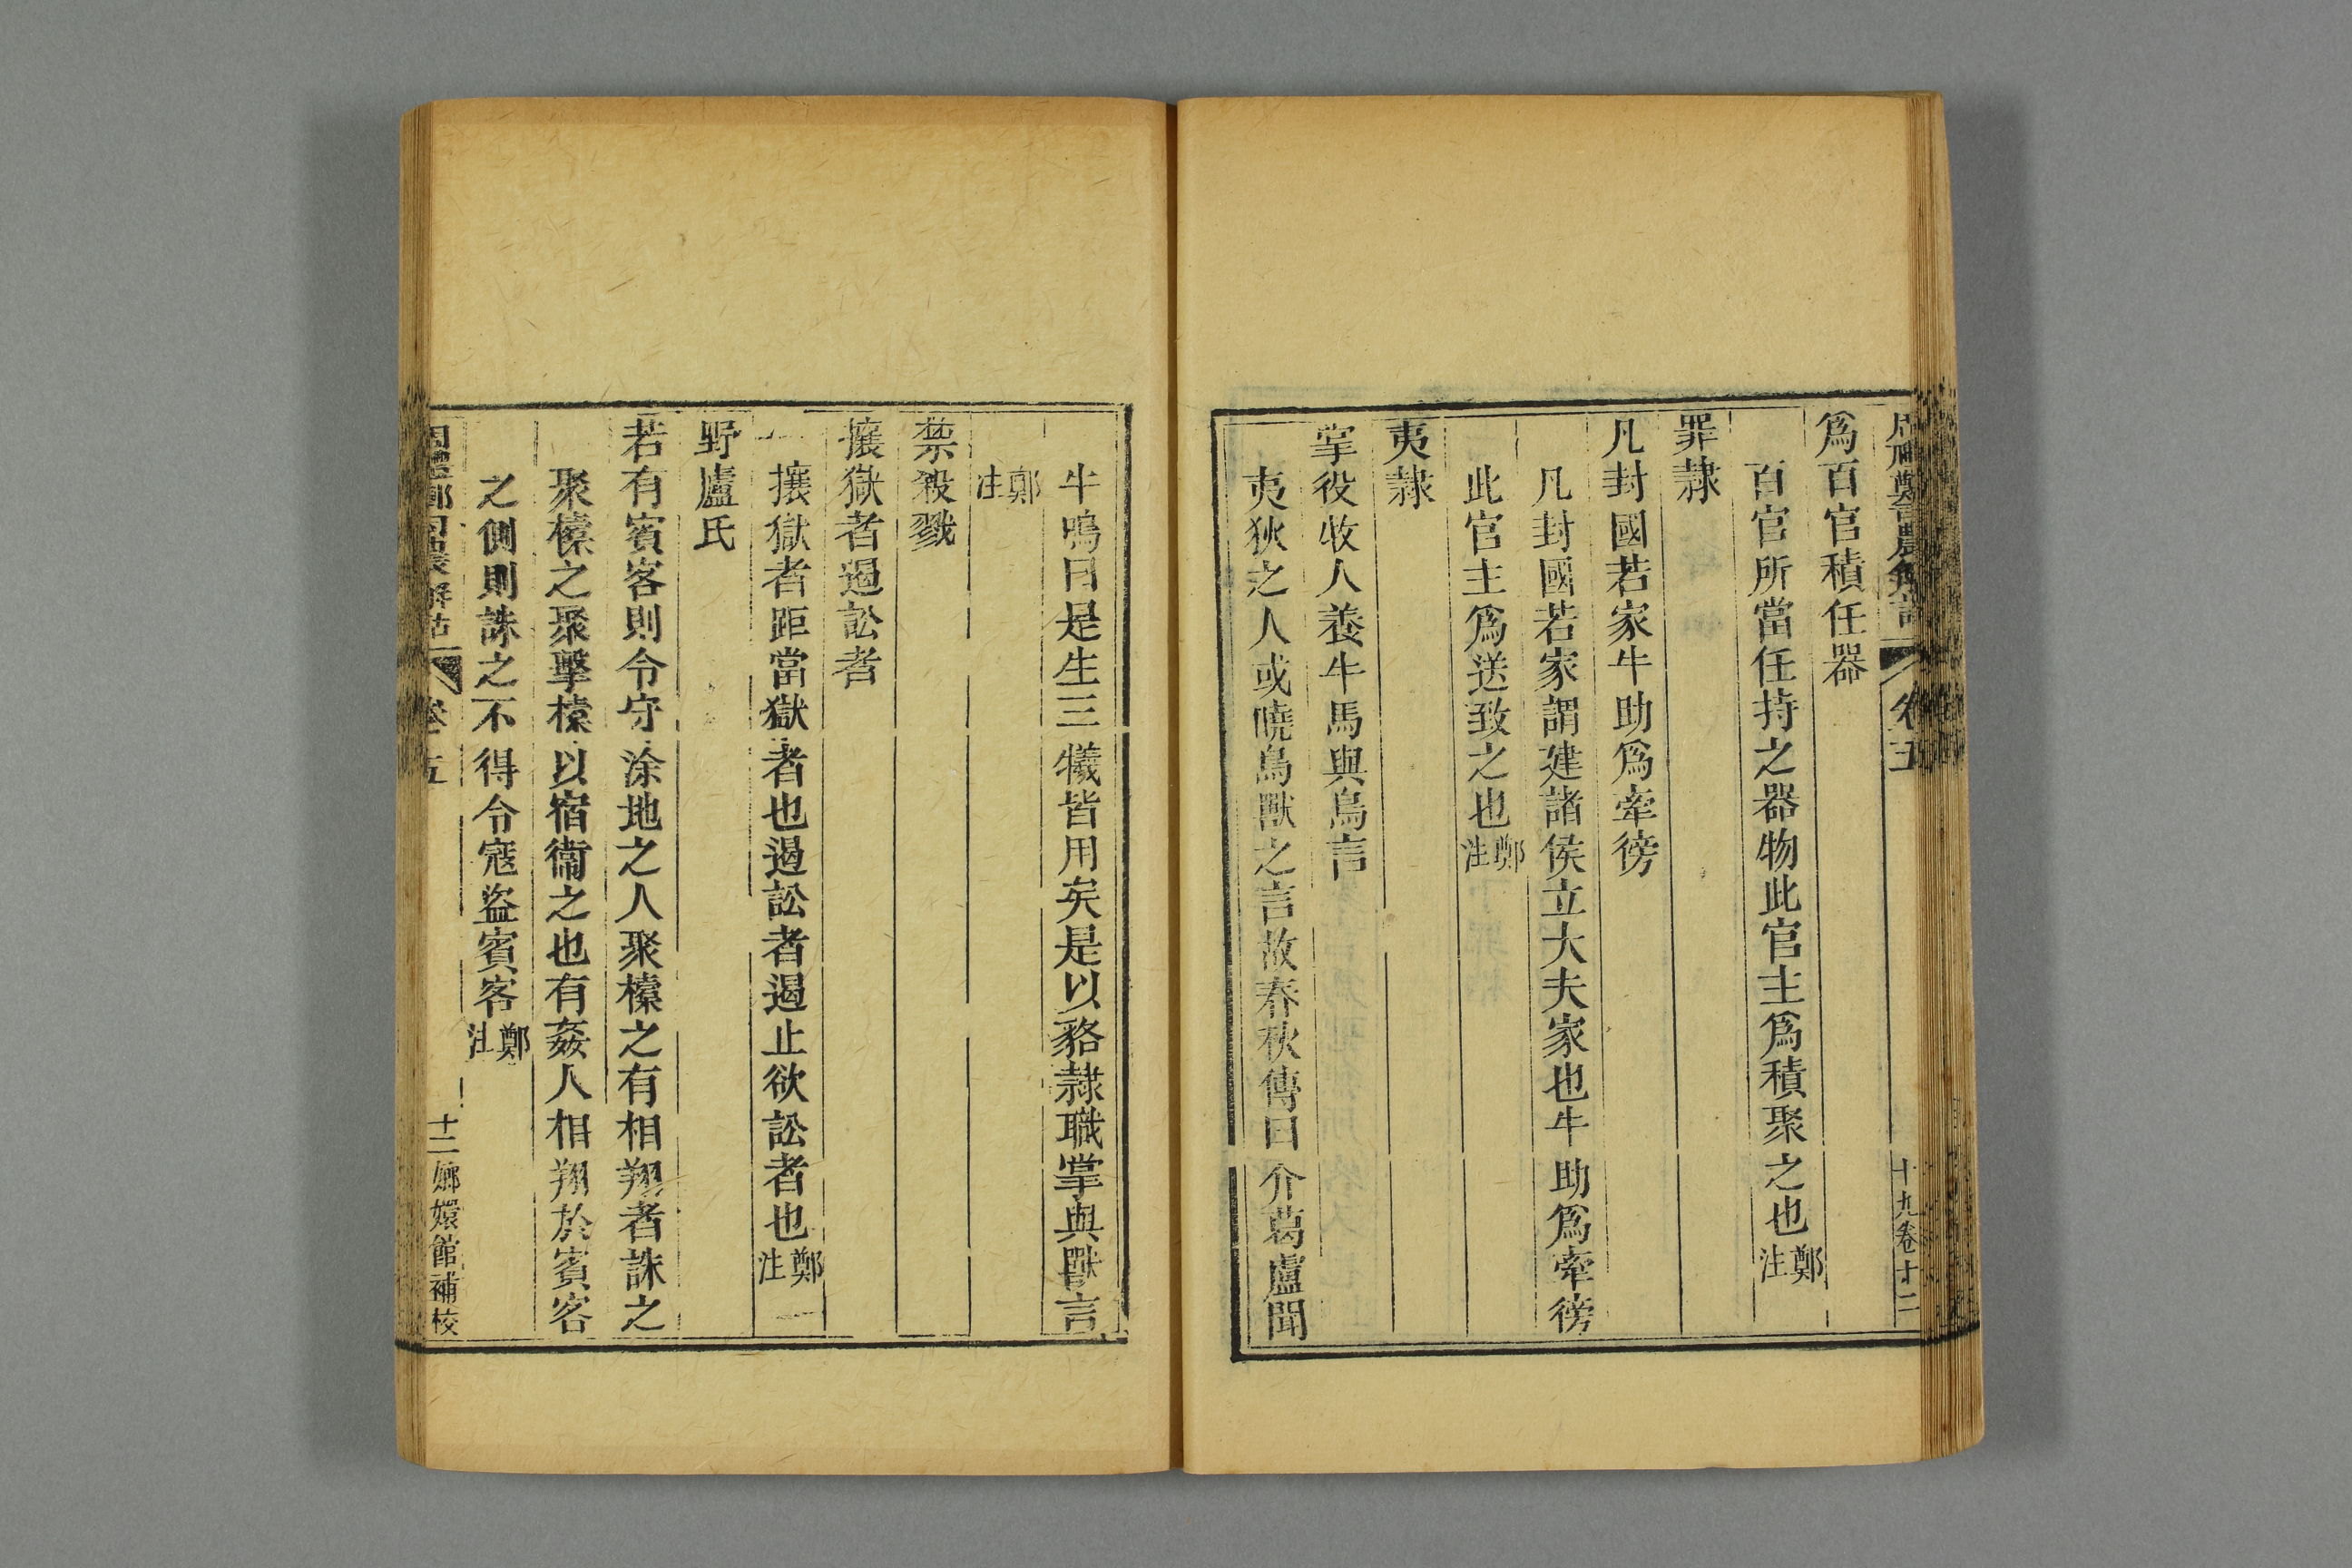 爲百官積任器
百官所當任持之器物此官主爲積聚之也鄭注
罪隷
凡封國若家牛助爲牽徬
凡封國若家謂建諸侯立大夫家也牛助爲牽徬
此官主爲送致之也鄭注
夷隷
掌役收人養牛馬與鳥言
夷狄之人或曉鳥獸之言故春秋傳曰介葛盧聞
牛鳴曰是生三犧皆用矣是以貉隷職掌與獸言
鄭注
禁殺戮
攘獄者遏訟者
攘獄者距當獄者也遏訟者遏止欲訟者也鄭注
野廬氏
若有賓客則令守涂地之人聚㯓之有相翔者誅之
聚㯓之聚擊㯓以宿衞之也有姦人相翔於賓客
之側則誅之不得令寇盜賓客鄭注
卷五
十二
嫏嬛館補校